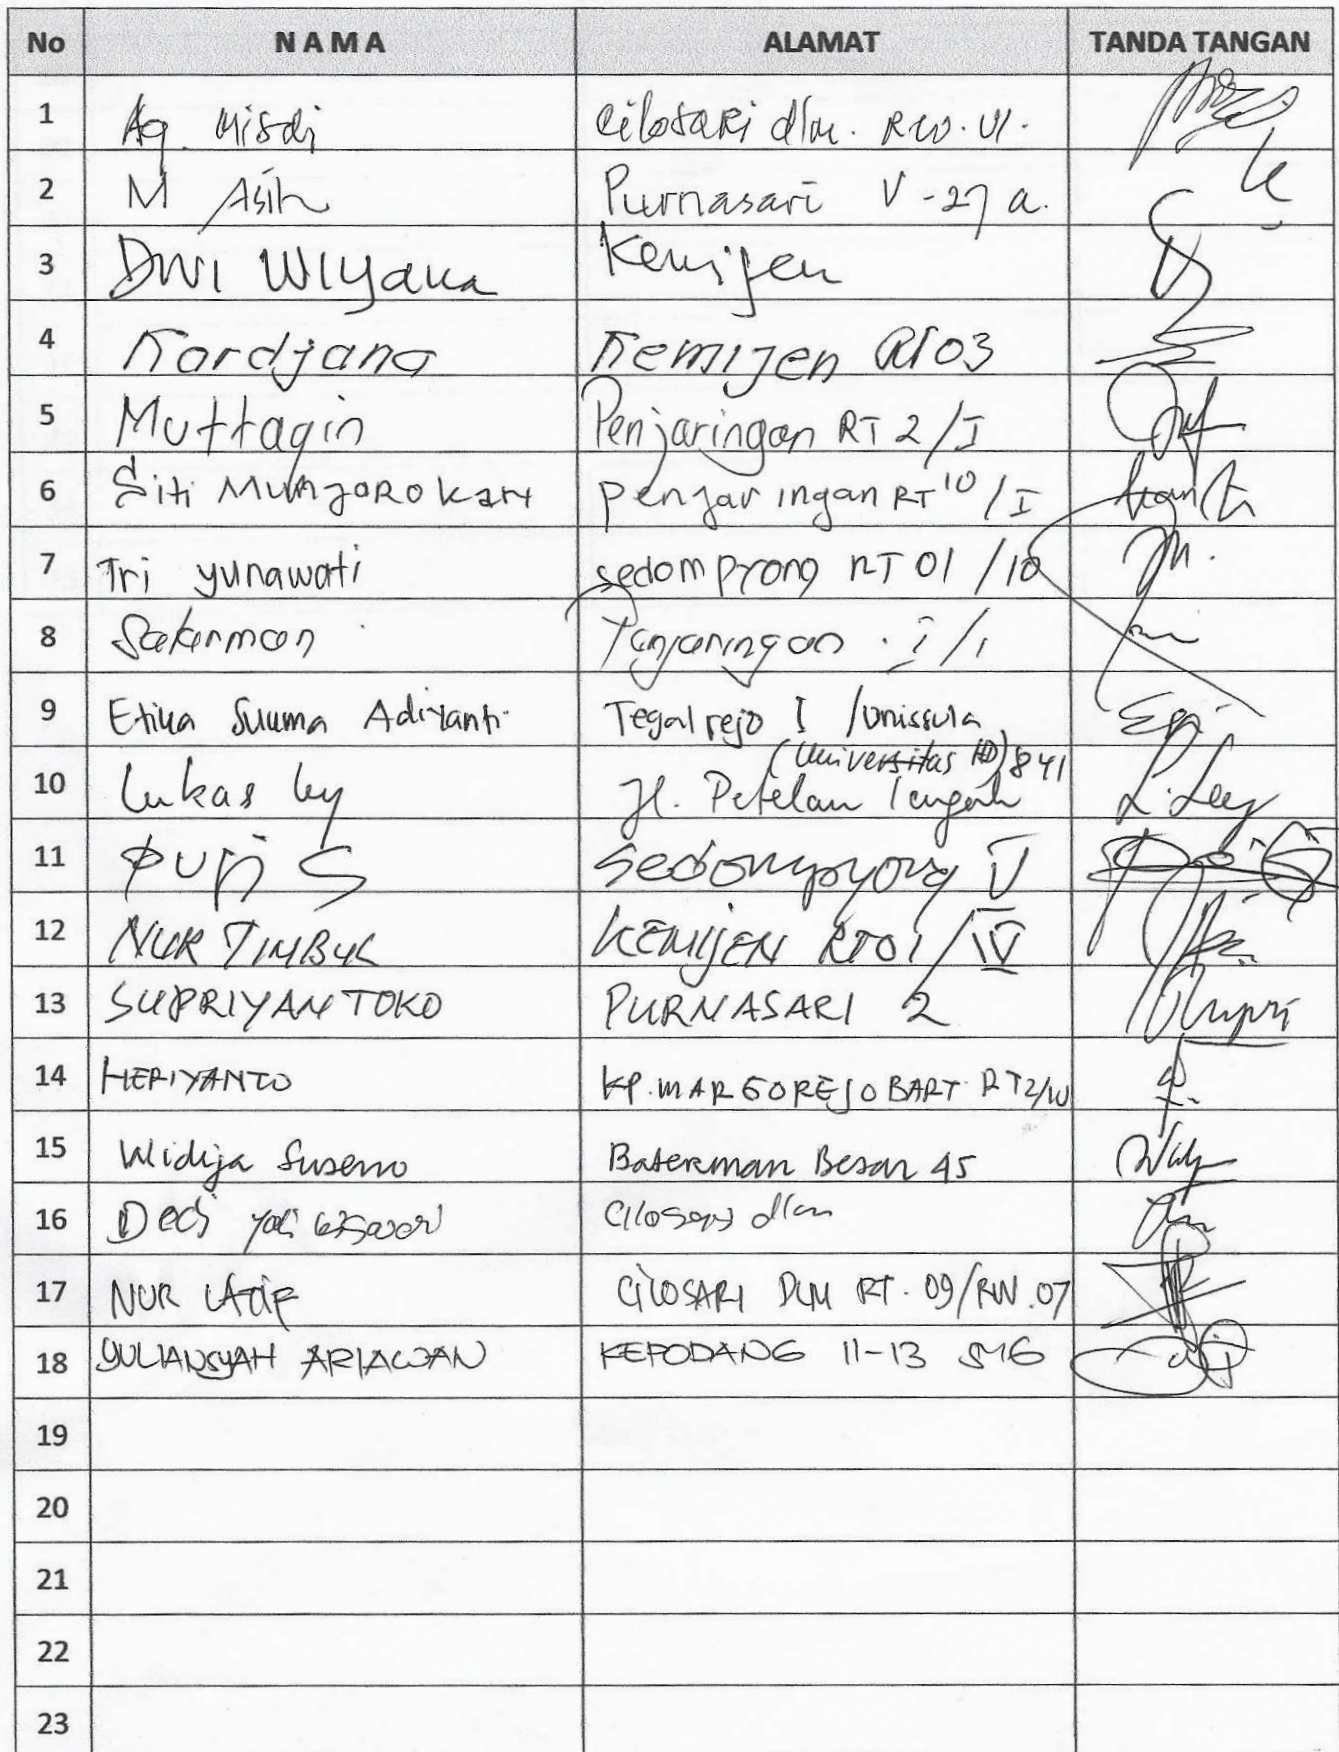 No NAMA ALAMAT TANDA TANGAN
1 Ag. Misdi Cilosari dlm. RW. VI.
2 M Asih Purnasari V-27 a.
3 DWI WIYANA Kemijen
4 Kardjana Kemijen RT 03
5 Muttaqin Penjaringan RT 2/I
6 Siti Penjaringan RT 10/I
7 Tri yunawati sedomprong RT 01/10
8 Penjaringan I/1
9 Etika Suluma Adiyanti Tegalrejo I /Unissula
(Universitas)
10 Lukas Jl. Petelan Tengah 841
11 PUJI S Sedompyong V
12 NUR TIMBUL KEMIJEN RT01/IV
13 SUPRIYANTOKO PURNASARI 2
14 HERIYANTO KP. MARGOREJO BART RT2/IV
15 Widija Suseno Baterman Besar 45
16 Cilosari dlm
17 NUR LATIF CILOSARI DLM RT. 09/RW. 07
18 YULIANSYAH ARIAWAN KEPODANG 11-13 SMG
19
20
21
22
23